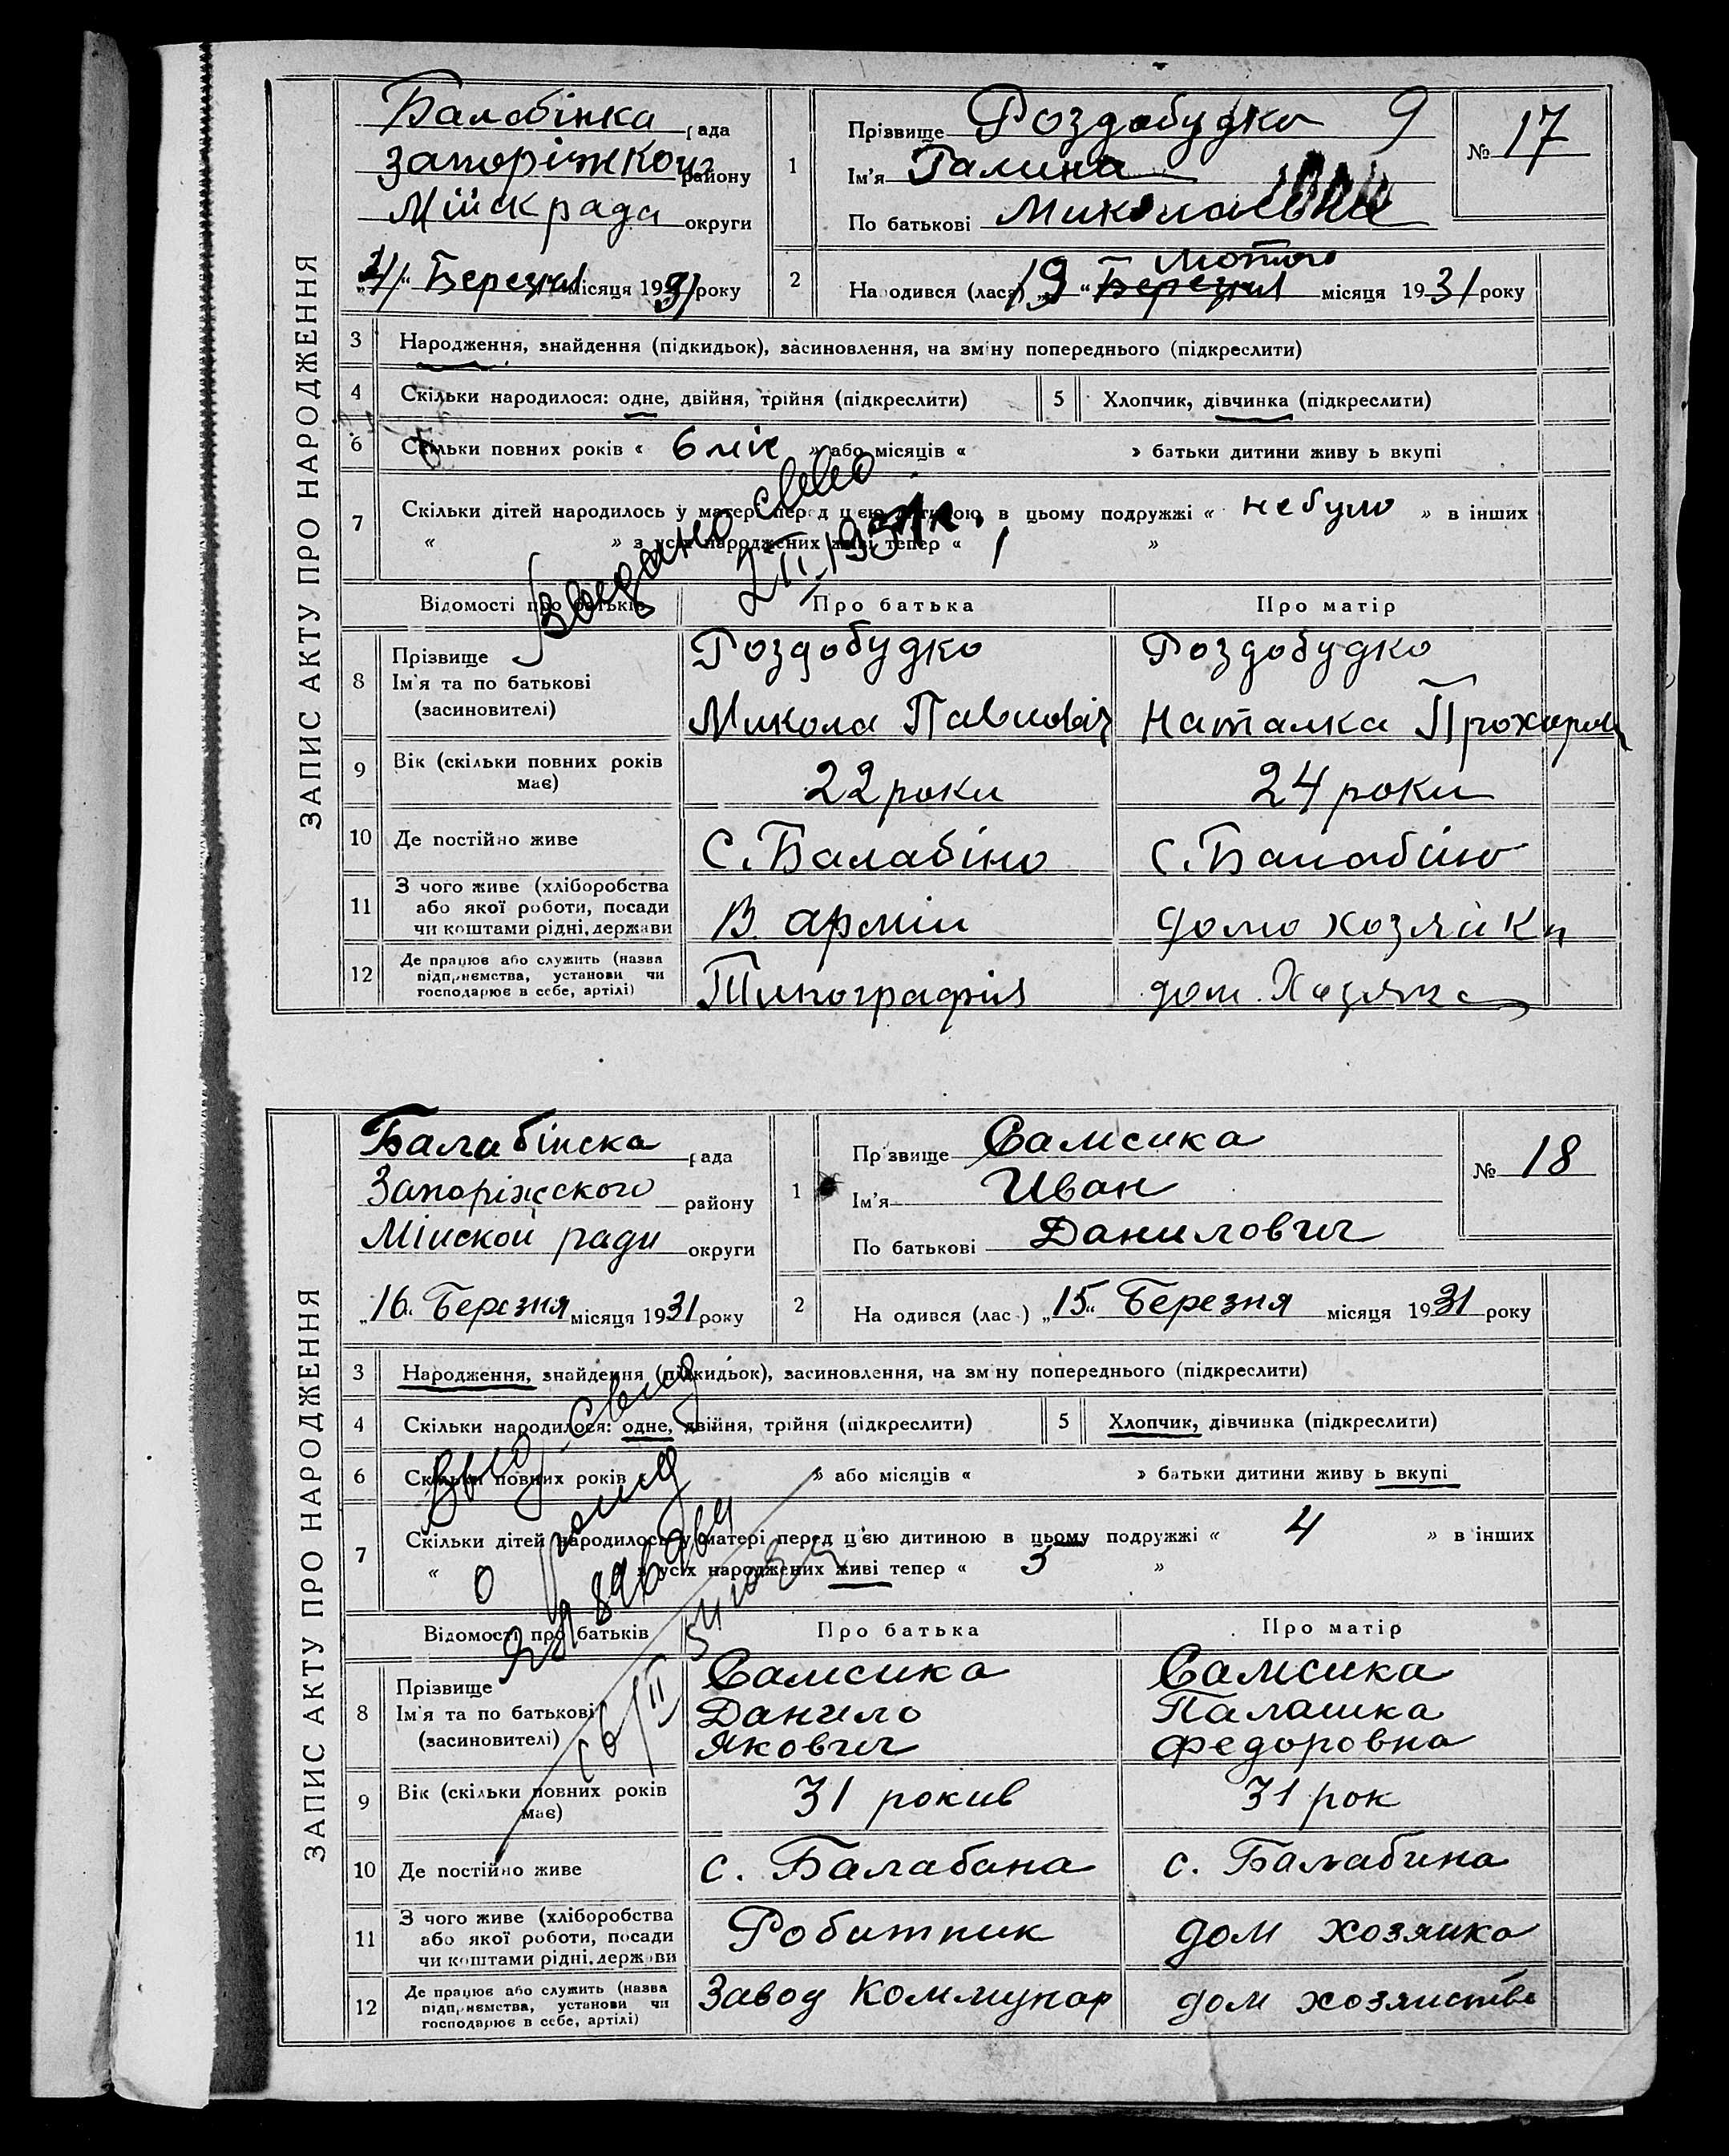 ЗАПИС АКТУ ПРО НАРОДЖЕННЯ
Балобінка рада
району
Мійскрада округи
Березня місяця 1931 року
1
Прізвище Роздобудко 9
Ім'я Галина
По батькові Миколаевна
№ 17
2
На одився (лася) „19“ Березня Лютого місяця 1931 року
3 Народження, знайдення (підкидьок), засиновлення, на зміну попереднього (підкреслити)
4 Скільки народилося: одне, двійня, трійня (підкреслити)
5 Хлопчик, дівчинка (підкреслити)
6 Скільки повних років « 6 міс » або місяців « » батьки дитини живу ь вкупі
7 Скільки дітей народилось у матері перед цією дитиною в цьому подружжі « не було » в інших
« » з усіх народжених живі тепер « 1 »
Відомості про батьків
Про батька
Про матір
8 Прізвище
Ім'я та по батькові
(засиновителі)
Роздобудко
Микола Павлович
Роздобудко
Наталка
9 Вік (скільки повних років
має)
22 роки
24 роки
10 Де постійно живе
С. Балабіно
С. Балабіно
11 З чого живе (хліборобства
або якої роботи, посади
чи коштами рідні, держави
В армии
домо хозяйка
12 Де працює або служить (назва
підприємства, установи чи
господарює в себе, артілі)
Типография
дом. Хозяйка
ЗАПИС АКТУ ПРО НАРОДЖЕННЯ
Балабінска рада
Запоріжского району
Мійской ради округи
„16“ Березня місяця 1931 року
1
Пр звище Самсика
Ім'я Иван
По батькові Данилович
№ 18
2
На одився (лас ) „15“ Березня місяця 1931 року
3 Народження, знайдення (підкидьок), засиновлення, на зм ну попереднього (підкреслити)
4 Скільки народилося: одне, двійня, трійня (підкреслити)
5 Хлопчик, дівчинка (підкреслити)
6 Скільки повних років » або місяців « » батьки дитини живу ь вкупі
7 Скільки дітей народилось у матері перед цією дитиною в цьому подружжі « 4 » в інших
« 0 з усіх народжених живі тепер « 3 »
Відомості про батьків
Про батька
Про матір
8 Прізвище
Ім'я та по батькові
(засиновителі)
Самсика
Данило
Якович
Самсика
Палашка
Федоровна
9 Вік (скільки повних років
має)
31 рокив
31 рок
10 Де постійно живе
с. Балабана
с. Балабина
11 З чого живе (хліборобства
або якої роботи, посади
чи коштами рідні, держ ви
Робитник
дом хозяика
12 Де працює або служить (назва
підприємства, установи чи
господарює в себе, артілі)
Завод Коммунар
дом хозяиство